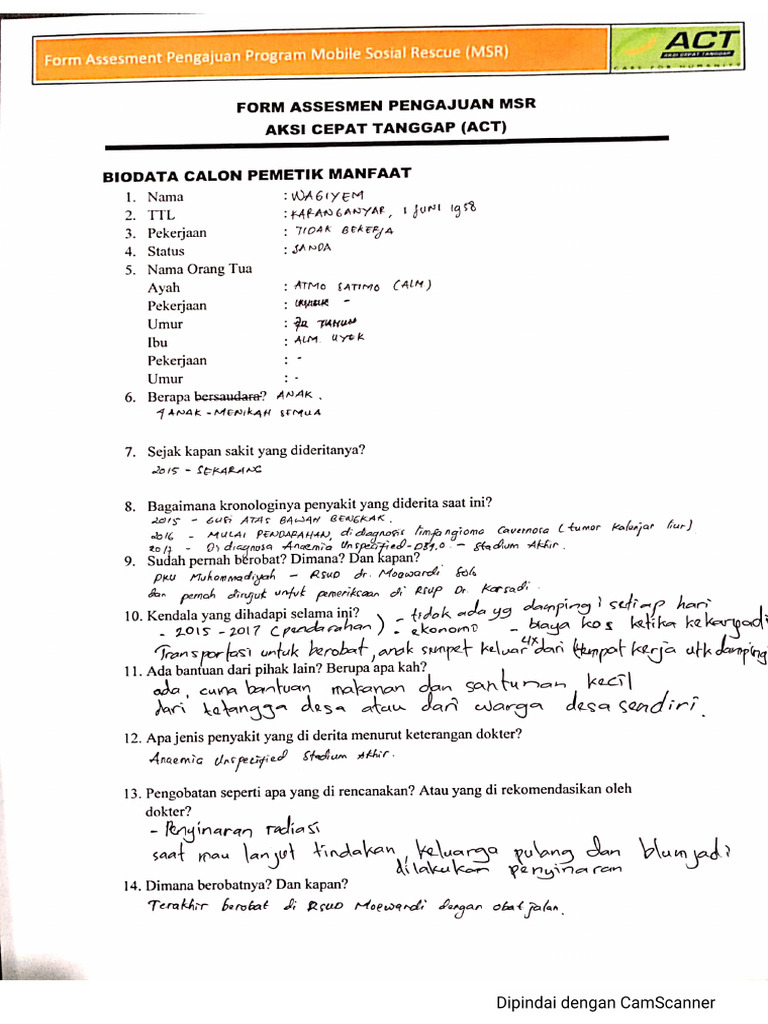 Form Assesment Pengajuan Program Mobile Sosial Rescue (MSR)
ACT
AKSI CEPAT TANGGAP
CARE FOR HUMANITY
FORM ASSESMEN PENGAJUAN MSR
AKSI CEPAT TANGGAP (ACT)
BIODATA CALON PEMETIK MANFAAT
1. Nama : WAGIYEM
2. TTL : KARANGANYAR, 1 JUNI 1958
3. Pekerjaan : TIDAK BEKERJA
4. Status : JANDA
5. Nama Orang Tua
Ayah : ATMO SATIMO (ALM)
Pekerjaan : -
Umur : TAHUN
Ibu : ALM. UYEK
Pekerjaan : -
Umur : -
6. Berapa bersaudara? ANAK.
4 ANAK - MENIKAH SEMUA
7. Sejak kapan sakit yang dideritanya?
2015 - SEKARANG
8. Bagaimana kronologinya penyakit yang diderita saat ini?
2015 - GUSI ATAS BAWAH BENGKAK.
2016 - MULAI PENDARAHAN, didiagnosis limfangioma Cavernosa (tumor Kelenjar liur)
2017 - Di diagnosa Anaemia Unspecified - D39.0 - Stadium Akhir.
9. Sudah pernah berobat? Dimana? Dan kapan?
PKU Muhammadiyah - RSUD dr. Moewardi Solo
dan pernah dirujuk untuk pemeriksaan di RSUP Dr. Kariadi.
10. Kendala yang dihadapi selama ini? - tidak ada yg dampingi setiap hari
- 2015 - 2017 (pendarahan) - ekonomi - biaya kos ketika kekaryadi
Transportasi untuk berobat, anak sempet keluar 4x dari tempat kerja utk damping
11. Ada bantuan dari pihak lain? Berupa apa kah?
ada, cuma bantuan makanan dan santunan kecil
dari tetangga desa atau dari warga desa sendiri.
12. Apa jenis penyakit yang di derita menurut keterangan dokter?
Anaemia Unspecified Stadium Akhir.
13. Pengobatan seperti apa yang di rencanakan? Atau yang di rekomendasikan oleh
dokter?
- Penyinaran radiasi
saat mau lanjut tindakan, keluarga pulang dan blum jadi
dilakukan penyinaran
14. Dimana berobatnya? Dan kapan?
Terakhir berobat di RSUD Moewardi dengan obat jalan.
Dipindai dengan CamScanner